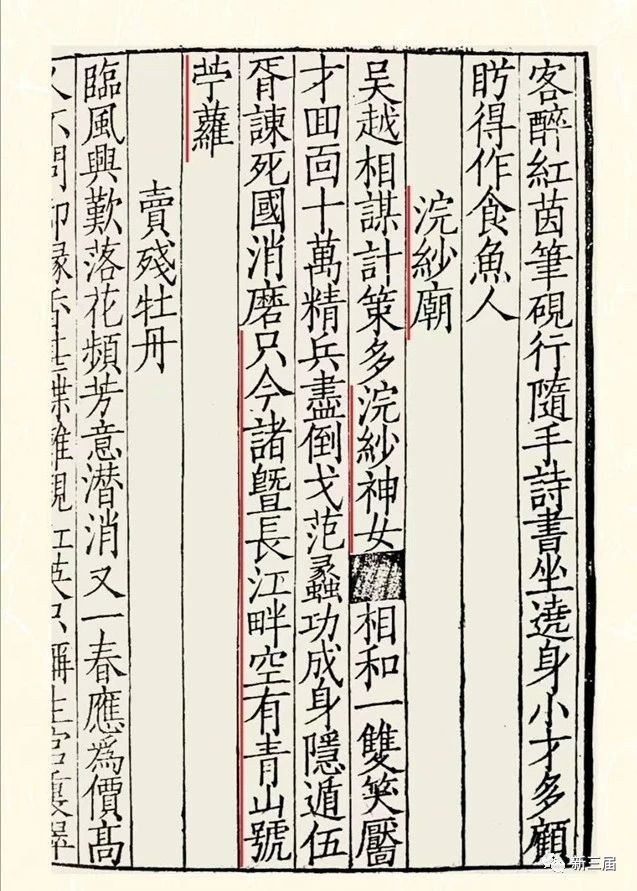 客醉紅茵筆硯行隨手詩書坐遶身小才多顧
眄得作食魚人
浣紗廟
吳越相謀計策多浣紗神女相和一雙笑靨
才囬面十萬精兵盡倒戈范蠡功成身隱遁伍
胥諫死國消磨只今諸曁長江畔空有青山號
苧蘿
賣殘牡丹
臨風興歎落花頻芳意潜消又一春應爲價高
人不問却緣香甚蝶難親紅英只稱生宮裏翠
新三届